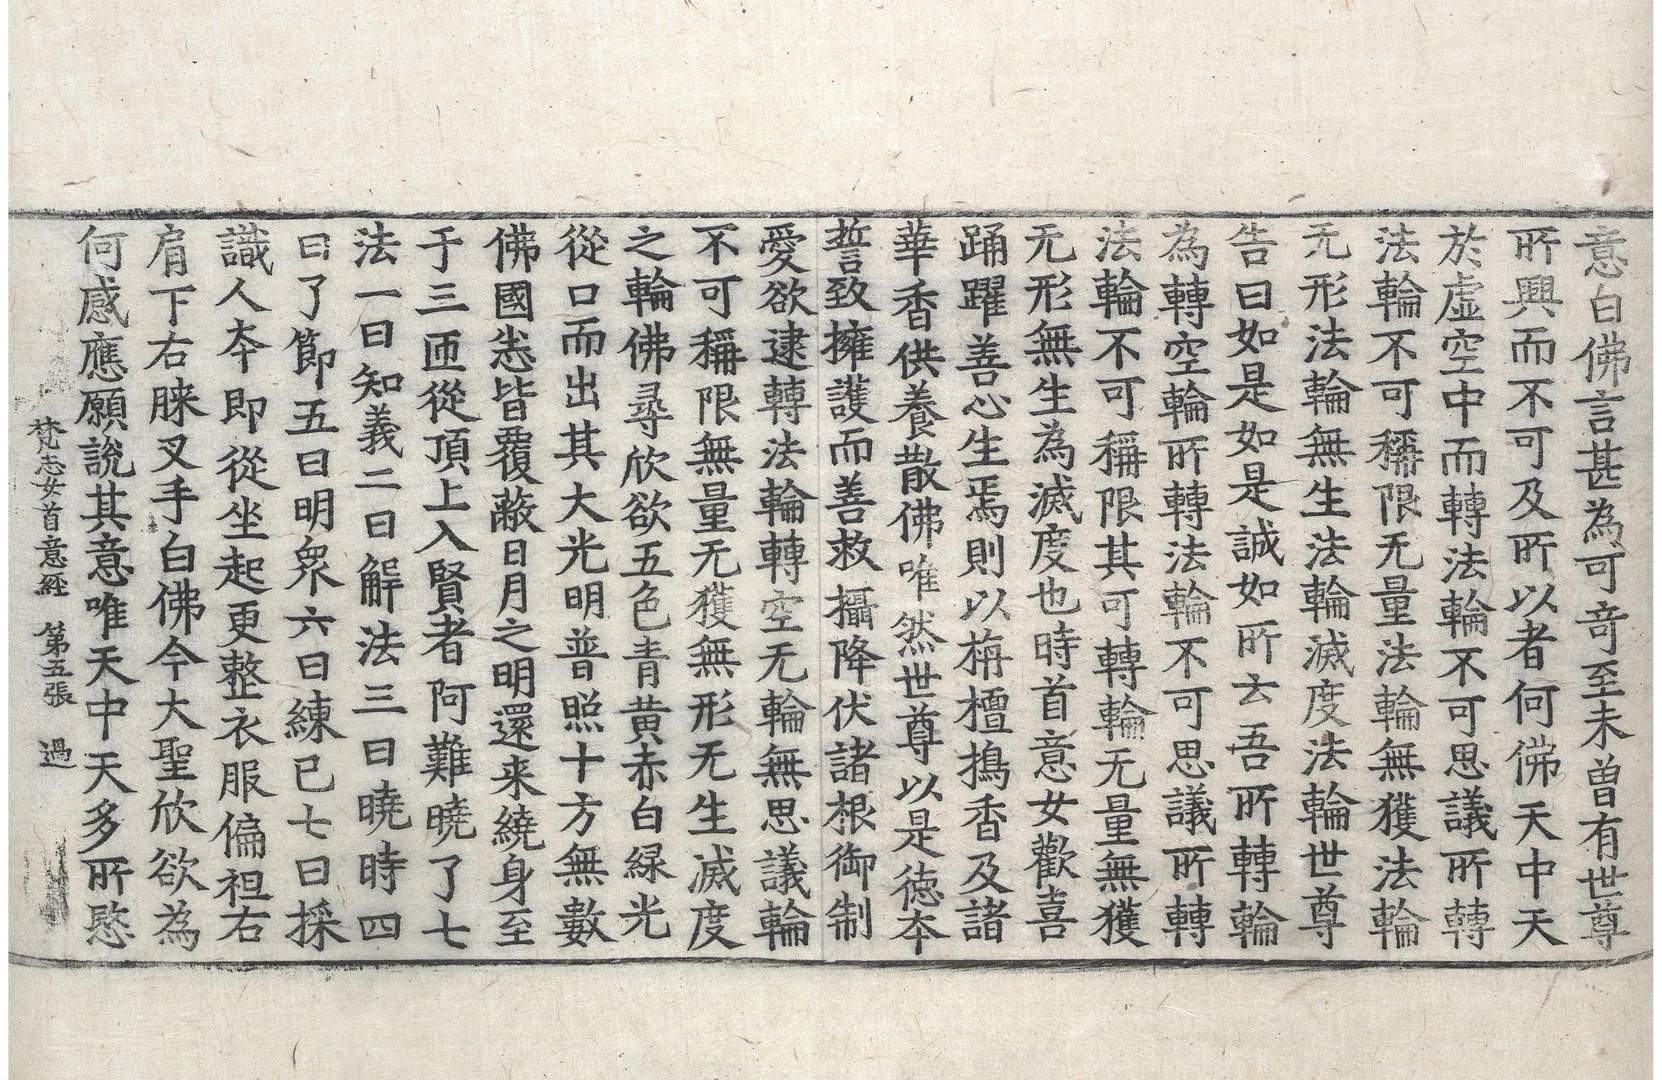 意白佛言甚為可奇至未曾有世尊
所興而不可及所以者何佛天中天
於虛空中而轉法輪不可思議所轉
法輪不可稱限无量法輪無獲法輪
无形法輪無生法輪滅度法輪世尊
告曰如是如是誠如所云吾所轉輪
為轉空輪所轉法輪不可思議所轉
法輪不可稱限其可轉輪无量無獲
无形無生為滅度也時首意女歡喜
踊躍善心生焉則以栴檀擣香及諸
華香供養散佛唯然世尊以是德夲
誓致擁護而善救攝降伏諸根御制
愛欲逮轉法輪轉空无輪無思議輪
不可稱限無量无獲無形无生滅度
之輪佛尋欣欲五色青黄赤白緑光
從口而出其大光明普照十方無數
佛國悉皆覆蔽日月之明還来繞身至
于三匝從頂上入賢者阿難曉了七
法一曰知義二曰解法三曰曉時四
曰了節五曰明衆六曰練已七曰採
識人夲即從坐起更整衣服偏袒右
肩下右膝叉手白佛今大聖欣欲為
何感應願說其意唯天中天多所愍
梵志女首意經　第五張　過